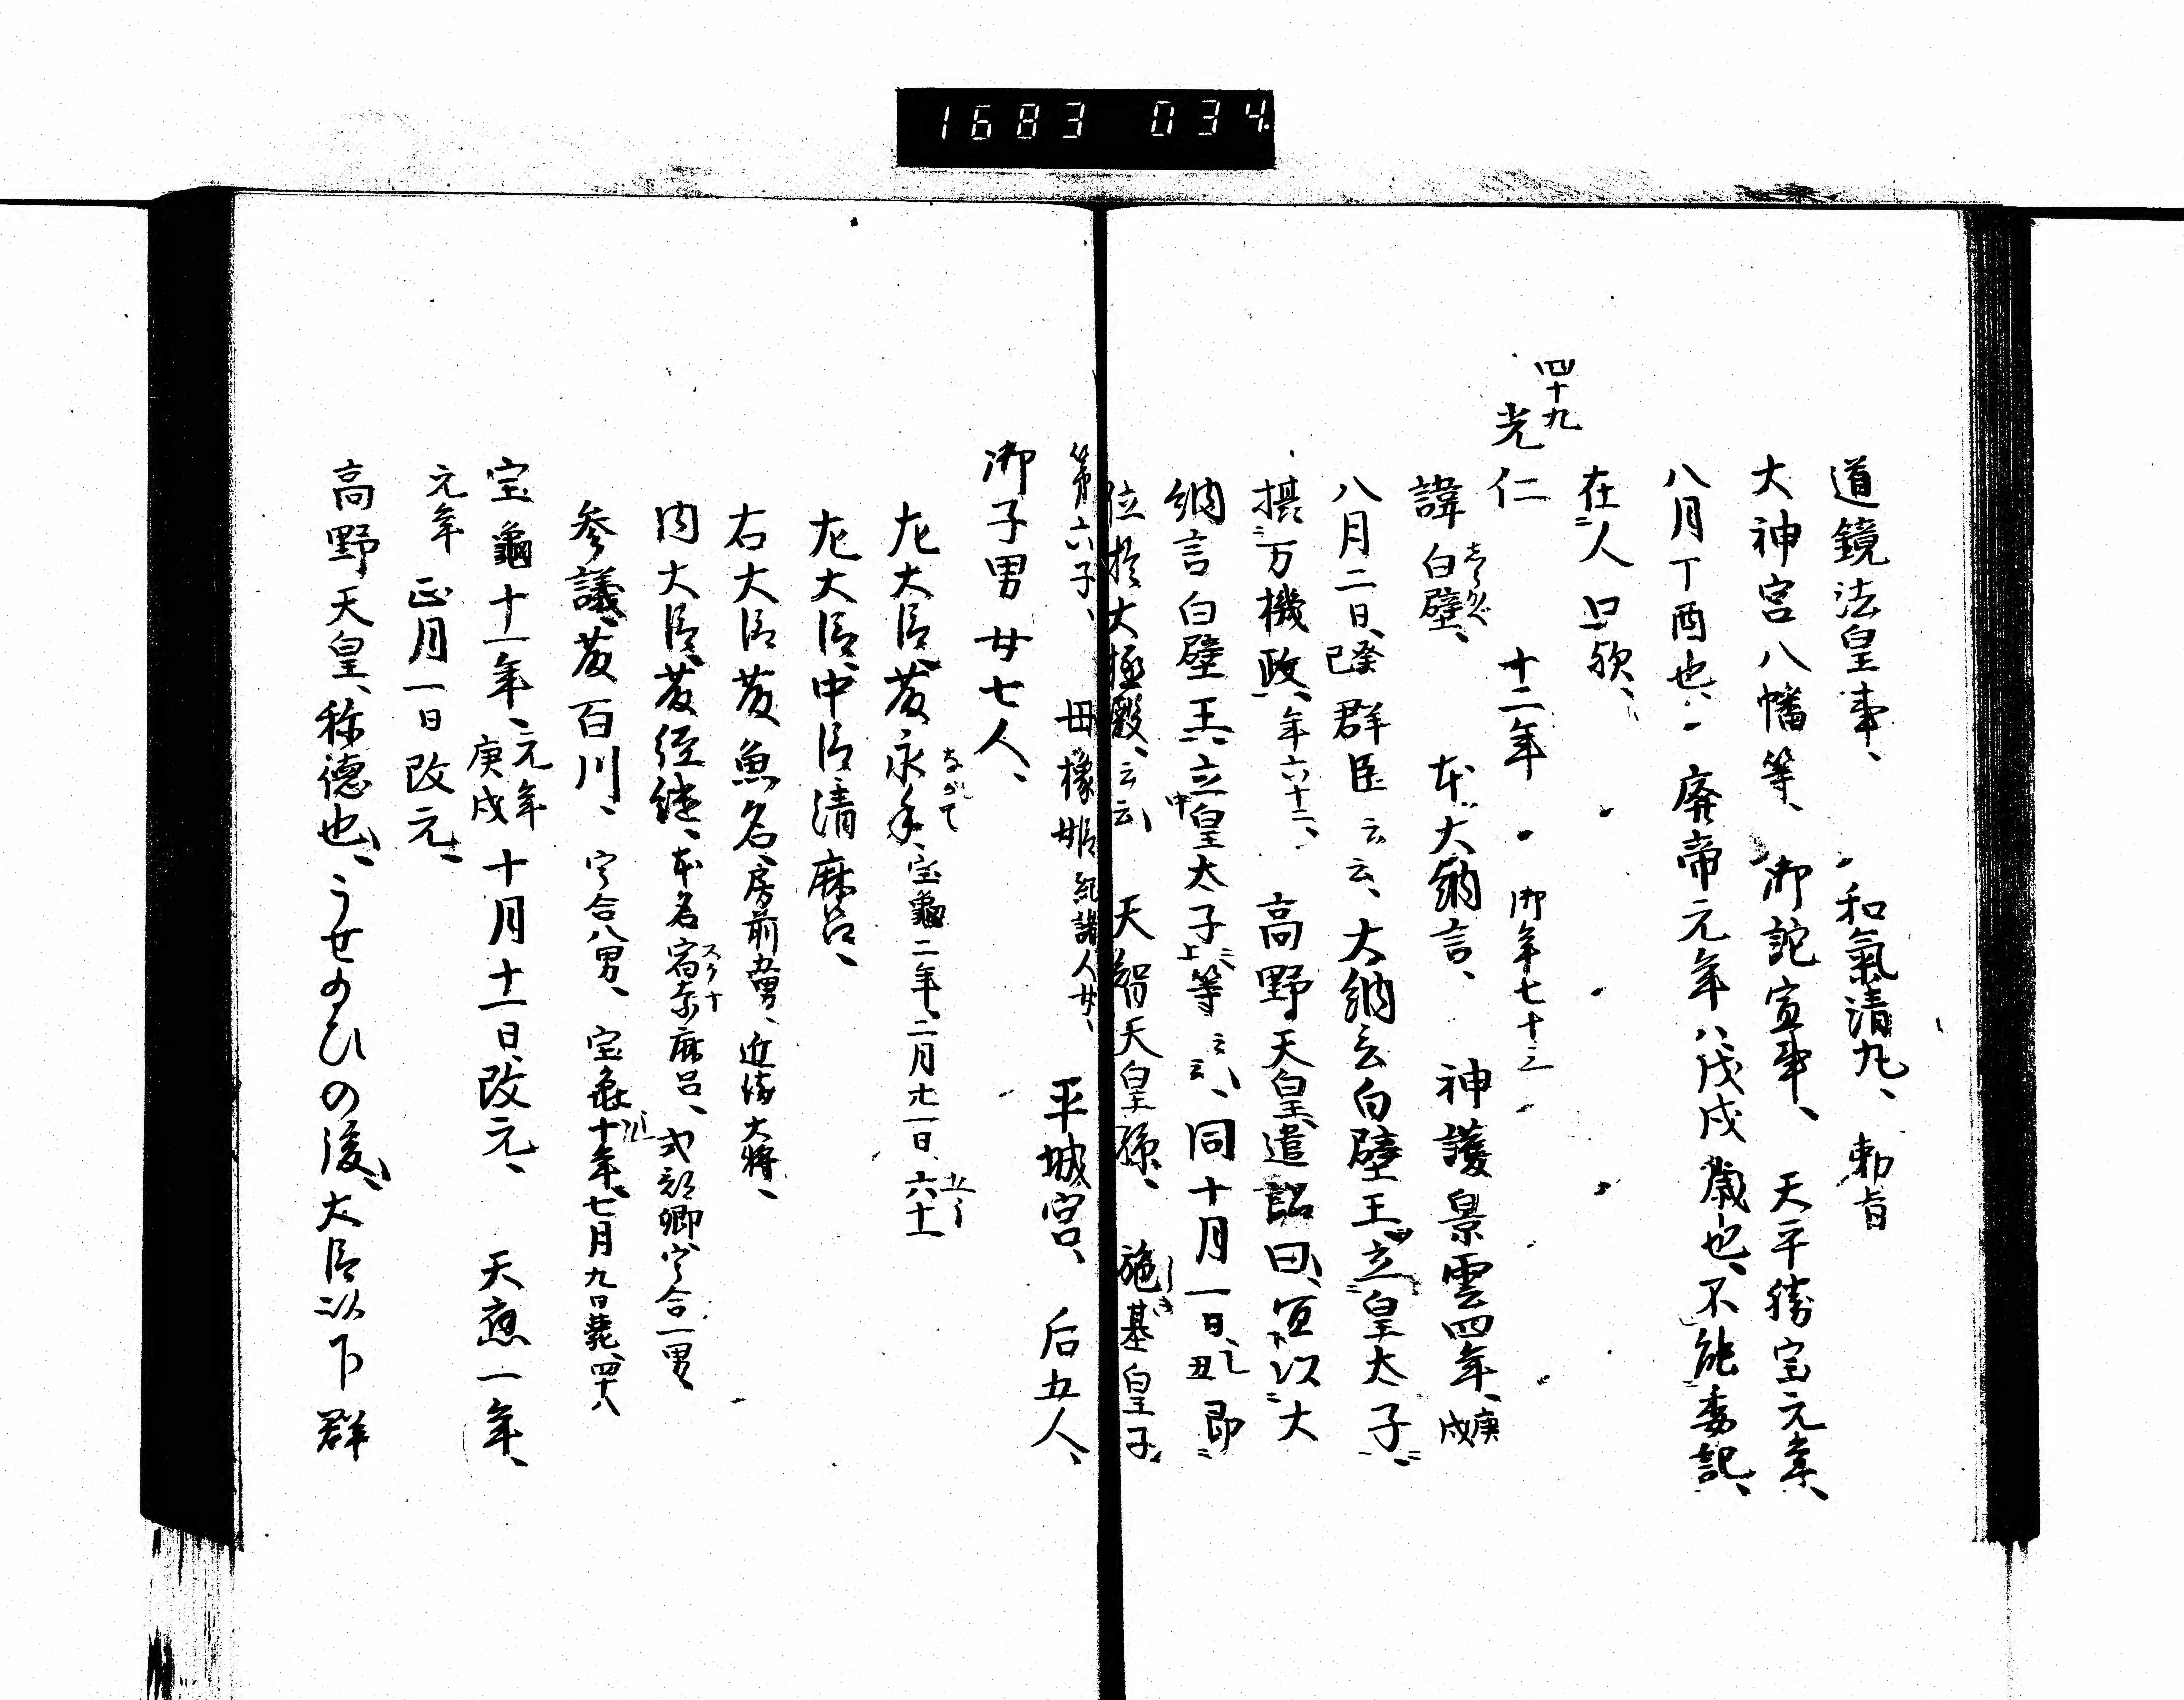 1683 034
道鏡法皇事、 和氣清丸、 勅旨
大神宮八幡等、御詫宣事、 天平勝宝元年、
八月丁酉也、廃帝元年八戊戌歳也、不能委記、
在人口歟、
四十九
光仁 十二年 御年七十三
諱白壁、 本大納言、 神護景雲四年、庚戌
八月二日、癸巳群臣云云、大納言白壁王立皇太子、
摂万機政、年六十二、 高野天皇遣詔曰、宜以大
納言白壁王、立皇太子等云云、同十月一日、己丑即
位於大極殿、云云 天智天皇孫、 施基皇子
第六子、 母橡姫紀諸人女、 平城宮、 后五人、
御子男女七人、
左大臣、藤永手、宝亀二年、二月廿一日、六十一
左大臣、中臣清麻呂、
右大臣藤魚名、房前五男、近衛大将、
内大臣、藤経継、本名宿奈麻呂、式部卿、宇合一男、
スクナ
参議、藤百川、宇合八男、 宝亀十年、七月九日薨、四十八
宝龜十一年、元年庚戌十月十一日改元、 天應一年、
元年 正月一日改元、
高野天皇、称徳也、うせ給ひの後、大臣以下群